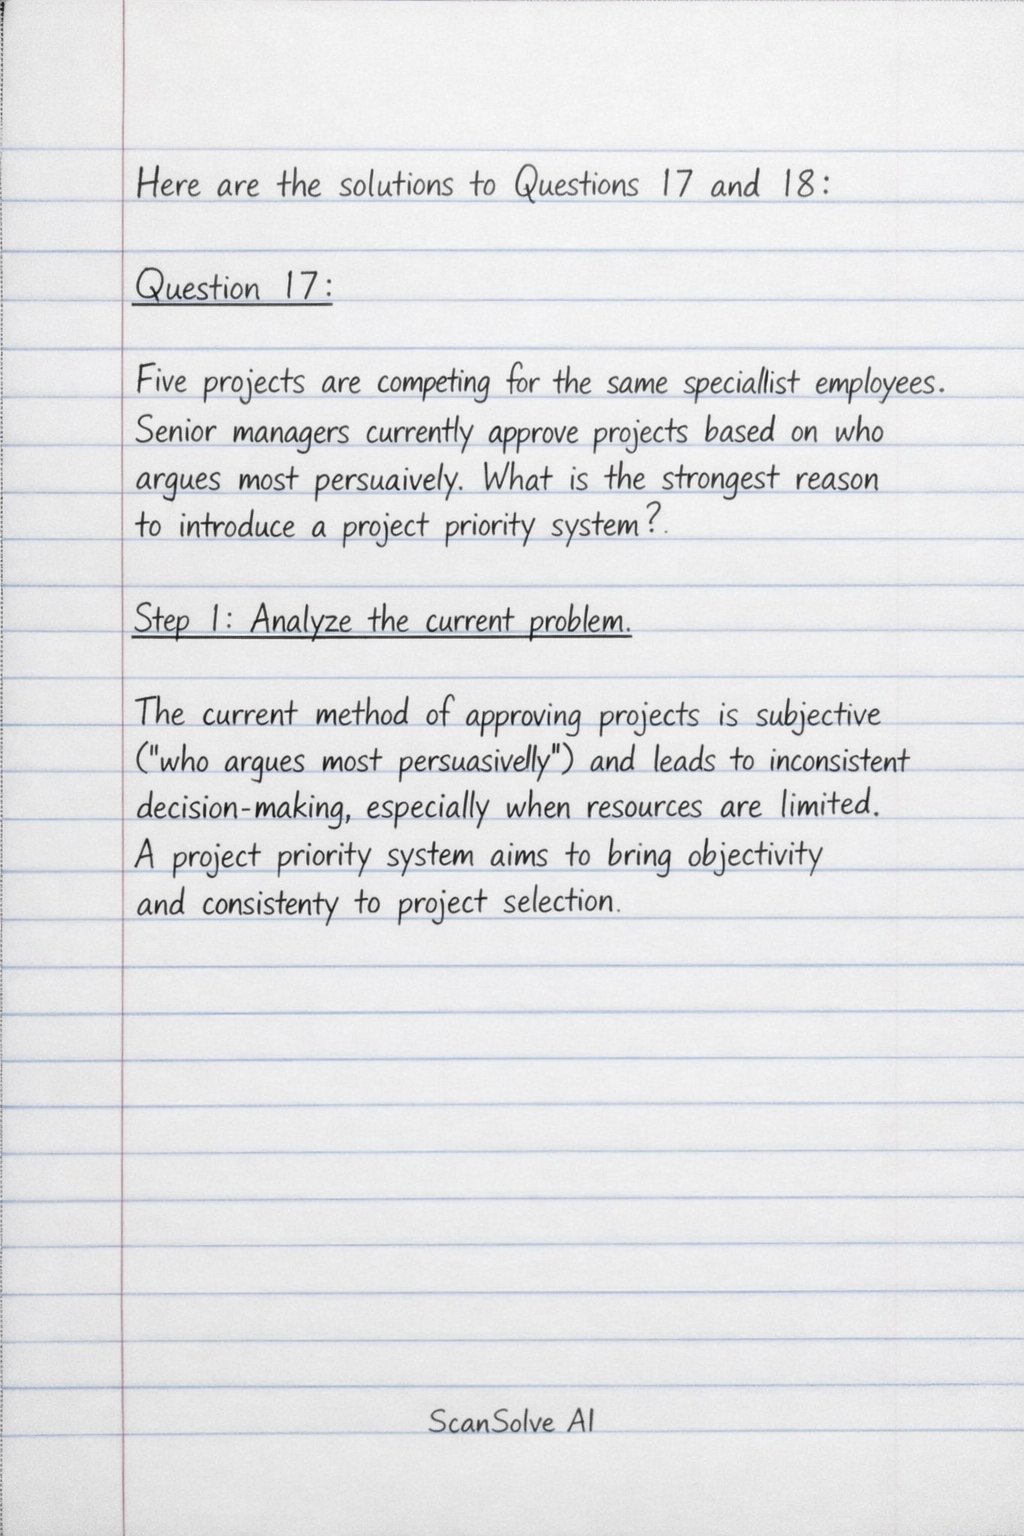 Here are the solutions to Questions 17 and 18:
Question 17:
Five projects are competing for the same speciallist employees.
Senior managers currently approve projects based on who
argues most persuaively. What is the strongest reason
to introduce a project priority system?.
Step 1: Analyze the current problem.
The current method of approving projects is subjective
("who argues most persuasivelly") and leads to inconsistent
decision-making, especially when resources are limited.
A project priority system aims to bring objectivity
and consistenty to project selection.
ScanSolve AI